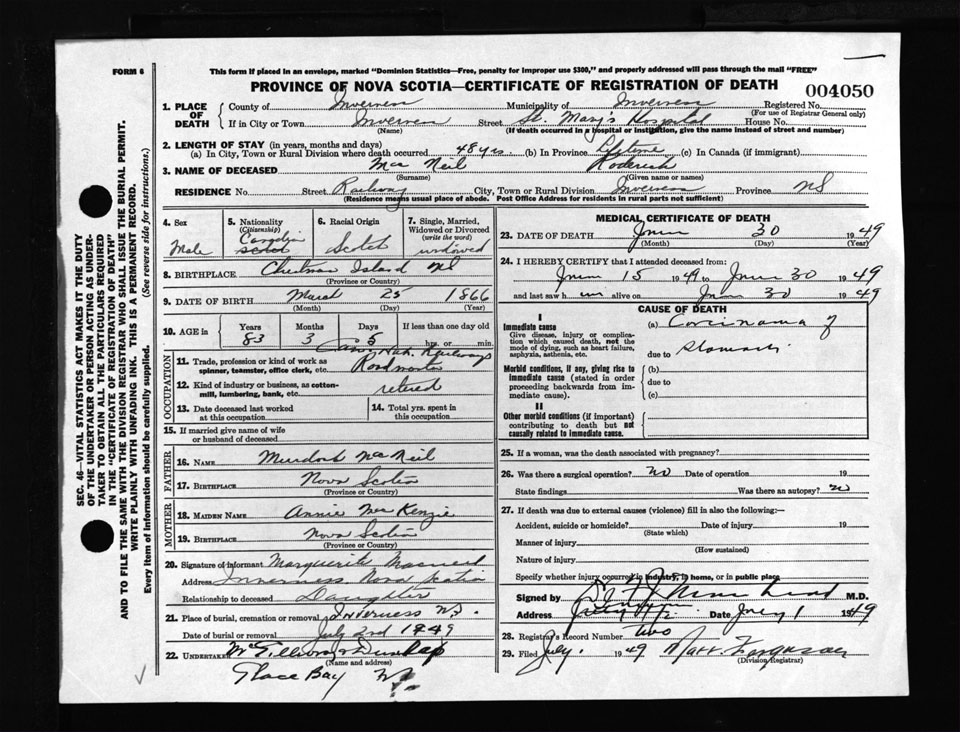 FORM 6
This form if placed in an envelope, marked "Dominion Statistics—Free, penalty for improper use $300," and properly addressed will pass through the mail "FREE"
PROVINCE OF NOVA SCOTIA—CERTIFICATE OF REGISTRATION OF DEATH
004050
1. PLACE OF DEATH
County of Inverness Municipality of Inverness Registered No.
(For use of Registrar General only)
If in City or Town Inverness Street St. Mary's Hospital House No.
(Name) (If death occurred in a hospital or institution, give the name instead of street and number)
2. LENGTH OF STAY (in years, months and days)
(a) In City, Town or Rural Division where death occurred 48 yrs. (b) In Province Lifetime (c) In Canada (if immigrant)
3. NAME OF DECEASED Mac Neil Roderick
(Surname) (Given name or names)
RESIDENCE No. Street Railway City, Town or Rural Division Inverness Province NS
(Residence means usual place of abode. Post Office Address for residents in rural parts not sufficient)
4. Sex Male
5. Nationality (Citizenship) Canadian
6. Racial Origin Scotch
7. Single, Married, Widowed or Divorced (write the word) widowed
8. BIRTHPLACE Island NS
(Province or Country)
9. DATE OF BIRTH March 25 1866
(Month) (Day) (Year)
10. AGE in Years 83 Months 3 Days 5 If less than one day old hrs. or min.
OCCUPATION
Can. Nat. Railways
11. Trade, profession or kind of work as spinner, teamster, office clerk, etc. Roadmaster
12. Kind of industry or business, as cotton-mill, lumbering, bank, etc. retired
13. Date deceased last worked at this occupation
14. Total yrs. spent in this occupation
15. If married give name of wife or husband of deceased
FATHER
16. NAME Murdock Mac Neil
17. BIRTHPLACE Nova Scotia
(Province or Country)
MOTHER
18. MAIDEN NAME Annie Mac Kenzie
19. BIRTHPLACE Nova Scotia
(Province or Country)
20. Signature of informant Marguerite Macneil
Address Inverness Nova Scotia
Relationship to deceased Daughter
21. Place of burial, cremation or removal Inverness N.S.
Date of burial or removal July 2nd 1949
22. UNDERTAKER McGillivray Dunlap
(Name and address)
Glace Bay NS
MEDICAL CERTIFICATE OF DEATH
23. DATE OF DEATH June 30 1949
(Month) (Day) (Year)
24. I HEREBY CERTIFY that I attended deceased from:
June 15 1949 to June 30 1949
and last saw him alive on June 30 1949
CAUSE OF DEATH
I
Immediate cause
Give disease, injury or complication which caused death, not the mode of dying, such as heart failure, asphyxia, asthenia, etc.
(a) Carcinoma of
due to stomach
Morbid conditions, if any, giving rise to immediate cause (stated in order proceeding backwards from immediate cause).
(b)
due to
(c)
II
Other morbid conditions (if important) contributing to death but not causally related to immediate cause.
25. If a woman, was the death associated with pregnancy?
26. Was there a surgical operation? no Date of operation 19
State findings Was there an autopsy? no
27. If death was due to external causes (violence) fill in also the following:—
Accident, suicide or homicide? Date of injury 19
(State which)
Manner of injury
(How sustained)
Nature of injury
Specify whether injury occurred in industry, in home, or in public place
Signed by M.D.
Address Date July 1 1949
28. Registrar's Record Number two
29. Filed July. 1949 Ferguson
(Division Registrar)
SEC. 46—VITAL STATISTICS ACT MAKES IT THE DUTY
OF THE UNDERTAKER OR PERSON ACTING AS UNDERTAKER TO OBTAIN ALL THE PARTICULARS REQUIRED
IN THE "CERTIFICATE OF REGISTRATION OF DEATH"
AND TO FILE THE SAME WITH THE DIVISION REGISTRAR WHO SHALL ISSUE THE BURIAL PERMIT.
WRITE PLAINLY WITH UNFADING INK. THIS IS A PERMANENT RECORD.
Every item of information should be carefully supplied. (See reverse side for instructions.)